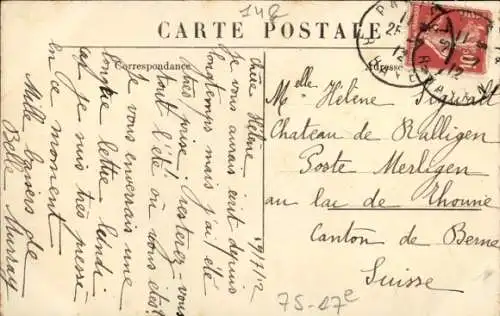 148
CARTE POSTALE
Correspondance
Adresse
19/7/12
Chère Hélène
je vous aurais écrit depuis
longtemps mais j'ai été
très prise! resterez-vous
tout l'été où vous êtes?
je vous enverrais une
longue lettre lundi
car je suis très pressée
en ce moment
Mille baisers de
Belle Murray
Melle Hélène Sigwalt
Chateau de Ralligen
Poste Merligen
au lac de Thoune
Canton de Berne
Suisse
75-17e
PARIS
10